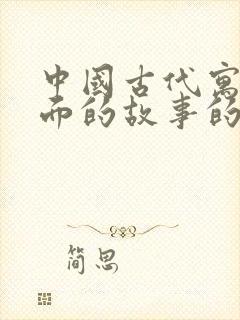 中國古代寓
而的故事的
简思